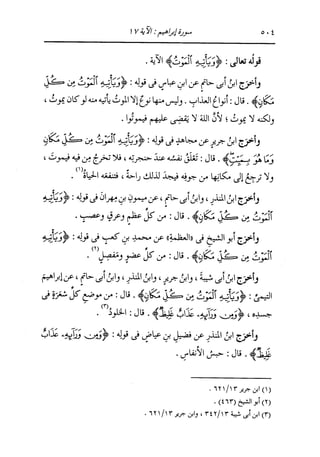 ٥٠٤ سورة إبراهيم : الآية ١٧
قولُه تعالى : ﴿وَيَأْتِيهِ ٱلْمَوْتُ﴾ الآية .
وأخرَج ابنُ أبي حاتمٍ عن ابنِ عباسٍ في قوله : ﴿وَيَأْتِيهِ ٱلْمَوْتُ مِن كُلِّ
مَكَانٍ﴾ . قال : أنواعُ العذابِ . وليس منها نوعٌ إلا الموتُ يأتيه منه لو كان يموتُ ،
ولكنه لا يموتُ ؛ لأنَّ اللهَ لا يَقضِى عليهم فيموتوا .
وأخرَج ابنُ جريرٍ عن مجاهدٍ في قوله : ﴿وَيَأْتِيهِ ٱلْمَوْتُ مِن كُلِّ مَكَانٍ
وَمَا هُوَ بِمَيِّتٍ﴾ . قال : تَعْلَقُ نفسُه عندَ حنجرتِه ، فلا تخرجُ مِن فيه فيموتَ ،
ولا ترجعُ إلى مكانِها مِن جوفِه فيجدَ لذلك راحةً ، فتنفعَه الحياةُ(١) .
وأخرَج ابنُ المنذرِ ، وابنُ أبي حاتمٍ ، عن ميمونِ بنِ مِهرانَ في قوله : ﴿وَيَأْتِيهِ
ٱلْمَوْتُ مِن كُلِّ مَكَانٍ﴾ . قال : مِن كلِّ عظمٍ وعرقٍ وعصبٍ .
وأخرَج أبو الشيخِ في «العظمةِ» عن محمدِ بنِ كعبٍ في قوله : ﴿وَيَأْتِيهِ
ٱلْمَوْتُ مِن كُلِّ مَكَانٍ﴾ . قال : مِن كلِّ عضوٍ ومَفصِلٍ(٢) .
وأخرَج ابنُ أبي شيبةَ ، وابنُ جريرٍ ، وابنُ المنذرِ ، وابنُ أبي حاتمٍ ، عن إبراهيمَ
التيميِّ : ﴿وَيَأْتِيهِ ٱلْمَوْتُ مِن كُلِّ مَكَانٍ﴾ . قال : مِن موضعِ كلِّ شعرةٍ في
جسدِه ، ﴿وَمِن وَرَآئِهِۦ عَذَابٌ غَلِيظٌ﴾ . قال : الخلودُ(٣) .
وأخرَج ابنُ المنذرِ عن فُضيلِ بنِ عياضٍ في قوله : ﴿وَمِن وَرَآئِهِۦ عَذَابٌ
غَلِيظٌ﴾ . قال : حبسُ الأنفاسِ .
(١) ابن جرير ١٣/ ٦٢١ .
(٢) أبو الشيخ (٤٦٣) .
(٣) ابن أبي شيبة ١٣/ ٣٤٢ ، وابن جرير ١٣/ ٦٢١ .